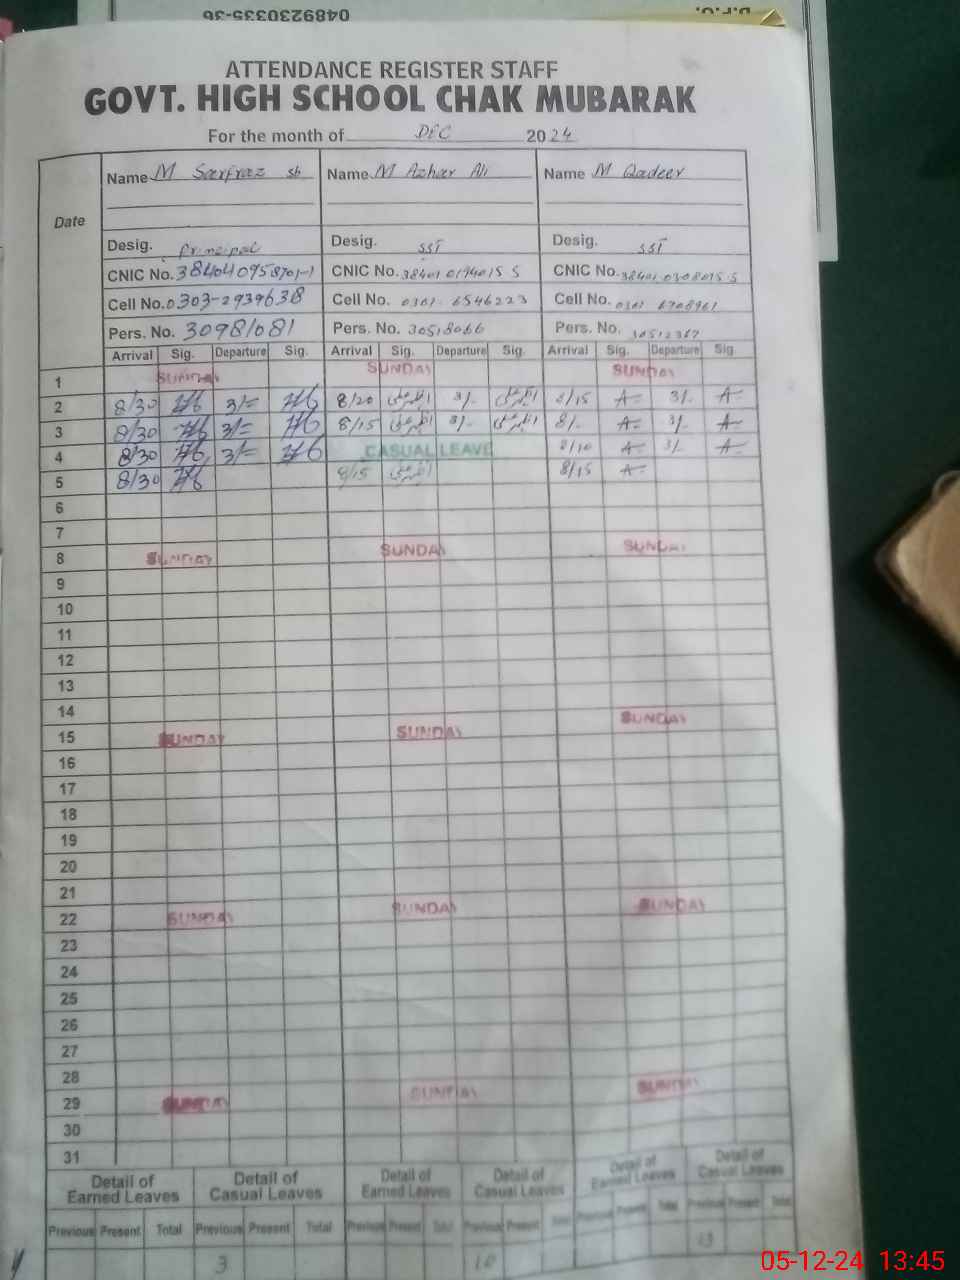 0489230335-36
D.P.O.
ATTENDANCE REGISTER STAFF
GOVT. HIGH SCHOOL CHAK MUBARAK
For the month of DEC 2024
Date
Name M Sarfraz sb Name M Azhar Ali Name M Qadeer
Desig. Principal Desig. SST Desig. SST
CNIC No. CNIC No. CNIC No.
Cell No. 0303-2939638 Cell No. 0301-6546223 Cell No. 0301 6708961
Pers. No. 30981081 Pers. No. 30518066 Pers. No. 30512367
Arrival Sig. Departure Sig. Arrival Sig. Departure Sig. Arrival Sig. Departure Sig.
1 SUNDAY SUNDAY SUNDAY
2 8/30 3/= 8/20 3/- 8/15 3/-
3 8/30 3/= 8/15 3/- 8/- 3/-
4 8/30 3/= CASUAL LEAVE 8/10 3/-
5 8/30 8/15 8/15
6
7
8 SUNDAY SUNDAY SUNDAY
9
10
11
12
13
14
15 SUNDAY SUNDAY SUNDAY
16
17
18
19
20
21
22 SUNDAY SUNDAY SUNDAY
23
24
25
26
27
28
29 SUNDAY SUNDAY SUNDAY
30
31
Detail of Earned Leaves Detail of Casual Leaves Detail of Earned Leaves Detail of Casual Leaves Detail of Earned Leaves Detail of Casual Leaves
Previous Present Total Previous Present Total Previous Present Total Previous Present Total Previous Present Total Previous Present Total
3 10 13
05-12-24 13:45